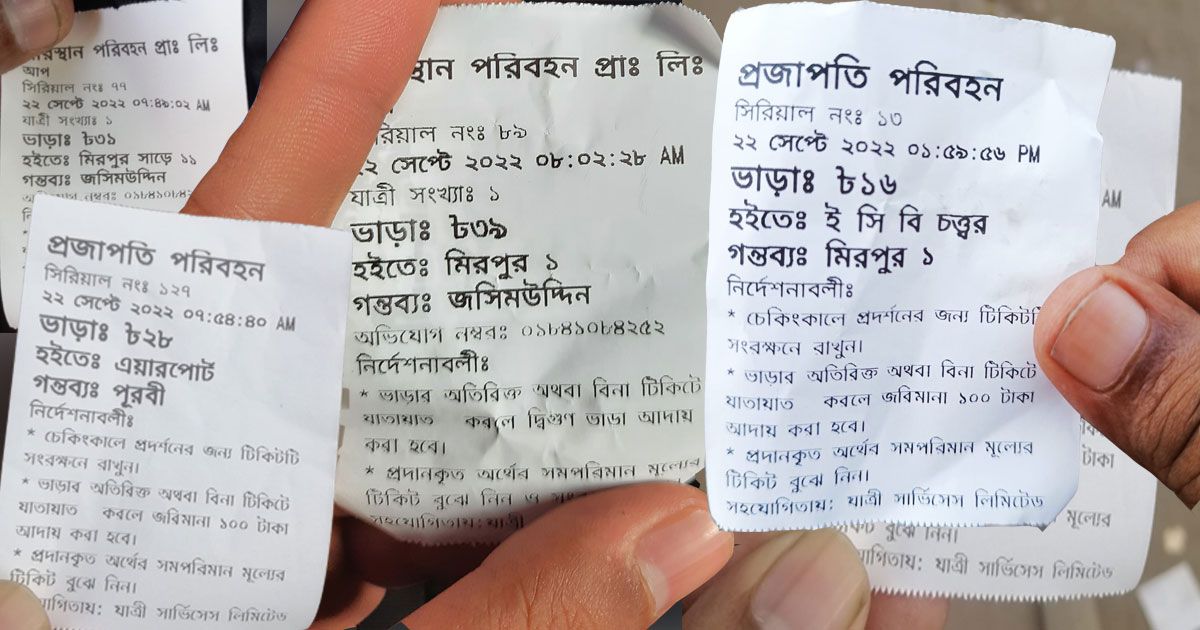 পরিবহন প্রাঃ লিঃ
আপ
সিরিয়াল নংঃ ৭৭
২২ সেপ্টে ২০২২ ০৭:৪৯:০২ AM
যাত্রী সংখ্যাঃ ১
ভাড়াঃ ৳৩১
হইতেঃ মিরপুর সাড়ে ১১
গন্তব্যঃ জসিমউদ্দিন
নম্বরঃ
প্রজাপতি পরিবহন
সিরিয়াল নংঃ ১২৭
২২ সেপ্টে ২০২২ ০৭:৫৪:৪০ AM
ভাড়াঃ ৳২৮
হইতেঃ এয়ারপোর্ট
গন্তব্যঃ পূরবী
নির্দেশনাবলীঃ
* চেকিংকালে প্রদর্শনের জন্য টিকিটটি
সংরক্ষনে রাখুন।
* ভাড়ার অতিরিক্ত অথবা বিনা টিকিটে
যাতায়াত করলে জরিমানা ১০০ টাকা
আদায় করা হবে।
* প্রদানকৃত অর্থের সমপরিমান মূল্যের
টিকিট বুঝে নিন।
যাত্রী সার্ভিসেস লিমিটেড
পরিবহন প্রাঃ লিঃ
নংঃ ৮৯
২২ সেপ্টে ২০২২ ০৮:০২:২৮ AM
যাত্রী সংখ্যাঃ ১
ভাড়াঃ ৳৩৯
হইতেঃ মিরপুর ১
গন্তব্যঃ জসিমউদ্দিন
অভিযোগ নম্বরঃ ০১৮৪১০৮৪২৫২
নির্দেশনাবলীঃ
* ভাড়ার অতিরিক্ত অথবা বিনা টিকিটে
যাতায়াত করলে দ্বিগুণ ভাডা আদায়
করা হবে।
* প্রদানকৃত অর্থের সমপরিমান মূল্যের
টিকিট বুঝে নিন ও
সহযোগিতায়: যাত্রী
প্রজাপতি পরিবহন
সিরিয়াল নংঃ ১৩
২২ সেপ্টে ২০২২ ০১:৫৯:৫৬ PM
ভাড়াঃ ৳১৬
হইতেঃ ই সি বি চত্ত্বর
গন্তব্যঃ মিরপুর ১
নির্দেশনাবলীঃ
* চেকিংকালে প্রদর্শনের জন্য
সংরক্ষনে রাখুন।
* ভাড়ার অতিরিক্ত অথবা বিনা টিকিটে
যাতায়াত করলে জরিমানা ১০০ টাকা
আদায় করা হবে।
* প্রদানকৃত অর্থের সমপরিমান মূল্যের
টিকিট বুঝে নিন।
সহযোগিতায়: যাত্রী সার্ভিসেস লিমিটেড
AM
টাকা
মূল্যের
বুঝে নিন।
যাত্রী সার্ভিসেস লিমিটেড